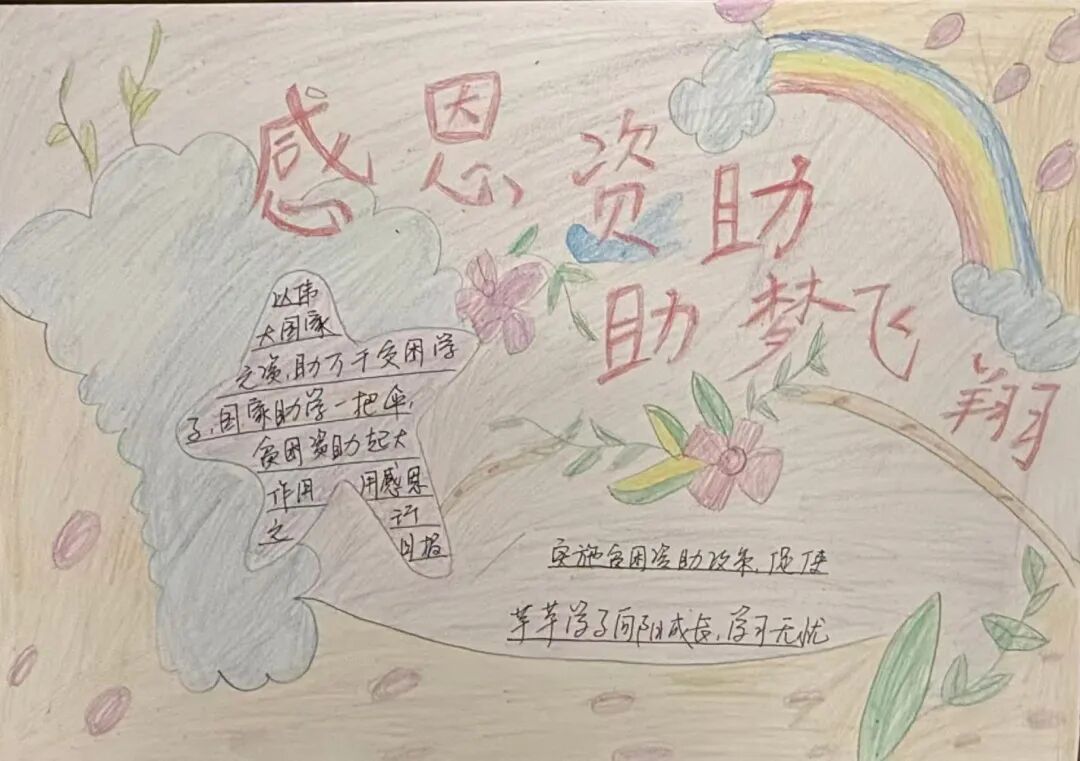 感恩资助
助梦飞翔
以伟
大国家
之资,助万千贫困学
子,国家助学一把伞,
贫困资助起大
作用 用感恩
之 行
回报
实施贫困资助政策,促使
莘莘学子向阳成长,学习无忧